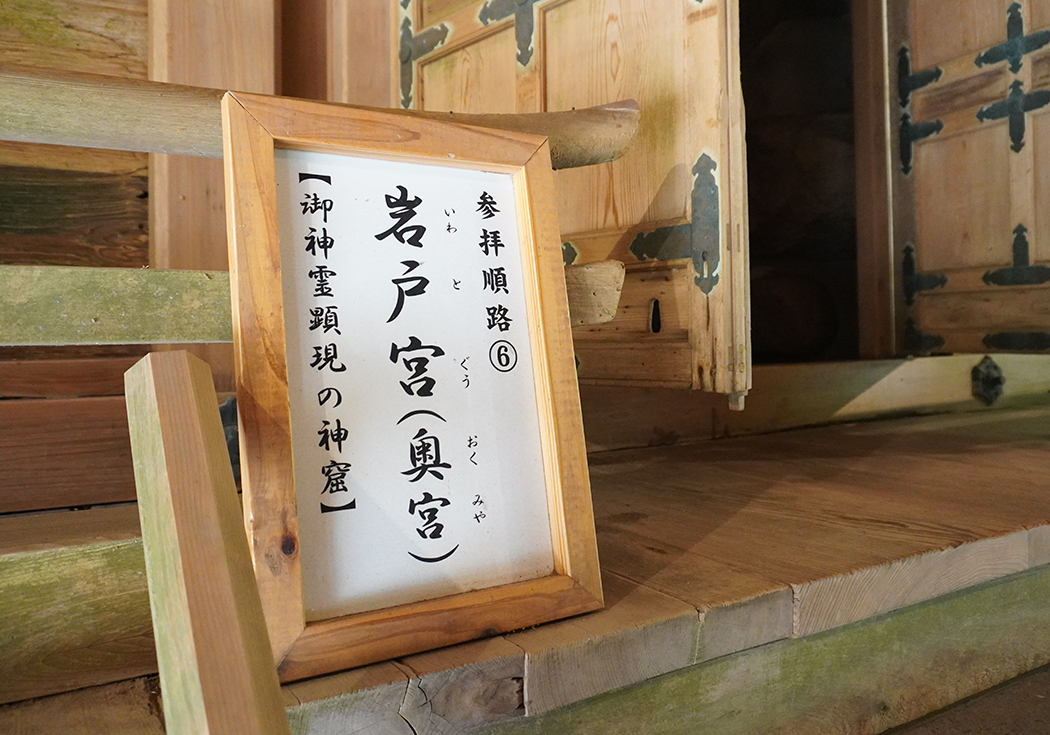 参拝順路⑥
いわ と ぐう おく みや
岩戸宮(奥宮)
【御神霊顕現の神窟】